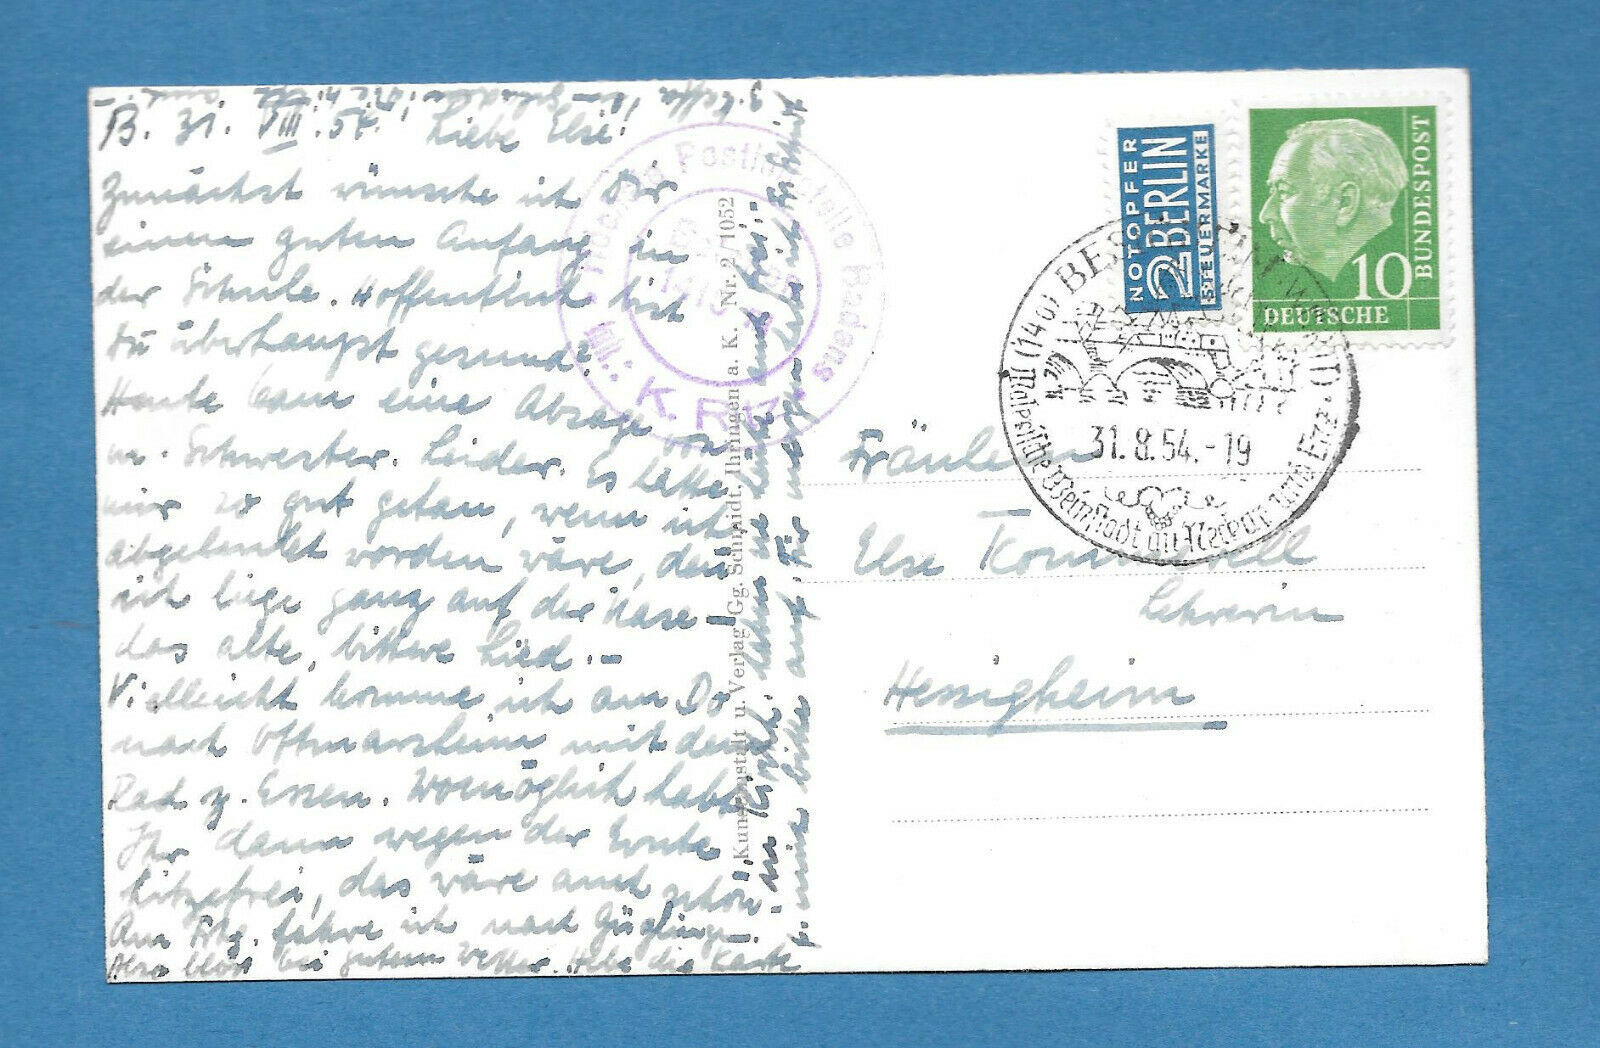 B. 31. VIII. 54. Liebe Else!
Zunächst wünsche ich Dir
einen guten Anfang in
der Schule. Hoffentlich bist
Du überhaupt gesund?
Heute kam eine Absage von
m. Schwester. Leider. Es hätte
mir so gut getan, wenn ich
abgelenkt worden wäre, denn
ich liege ganz auf der Nase!
das alte, bittere Lied.-
Vielleicht komme ich am Do
nach Ottmarsheim mit dem
Rad z. Essen. Womöglich habt
Ihr dann wegen der Ernte
hitzefrei, das wäre auch schön.
Am Frtg. fahre ich nach Güglingen.
Also bloß bei gutem Wetter. Hebe die Karte
Kunstanstalt u. Verlag Gg. Schmidt, Ihringen a. K. Nr. 2/1052
K. Ritz
NOTOPFER
2 BERLIN
STEUERMARKE
10
DEUTSCHE
BUNDESPOST
(14a) BESIGHEIM (WÜRTT)
31.8.54.-19
Fräulein
Else
Lehrerin
Hessigheim